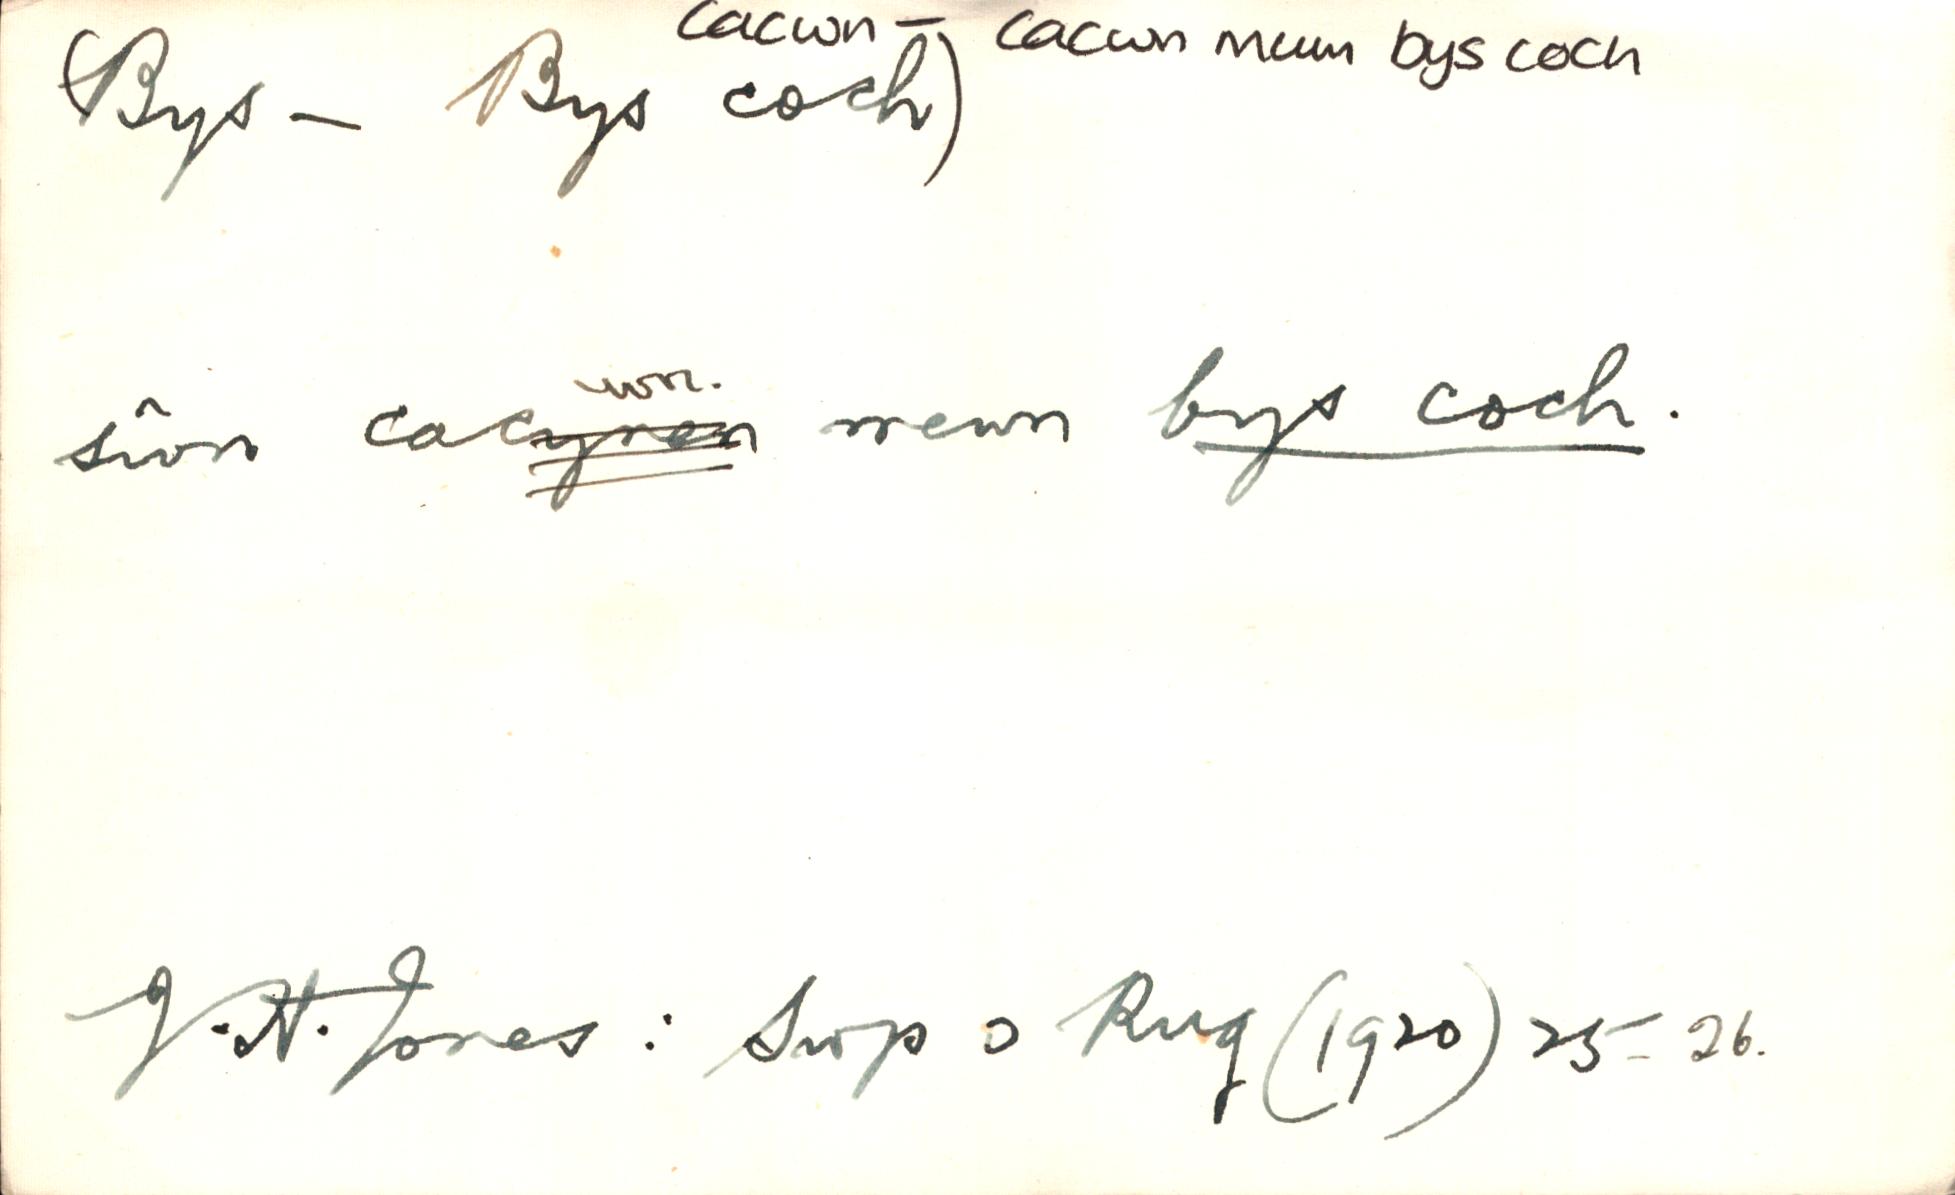 cacwn – cacwn mewn bys coch
(Bys – Bys coch)
wn.
sŵn cacynen mewn bys coch.
J. H. Jones : Swp o Rug (1920) 25 – 26.